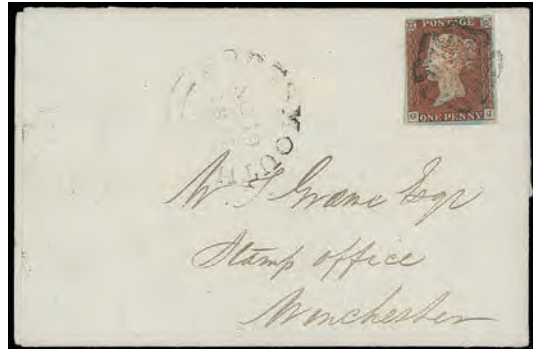 POSTAGE
ONE PENNY
G J
MOUTH
W. S. Grane Esqr
Stamp office
Winchester